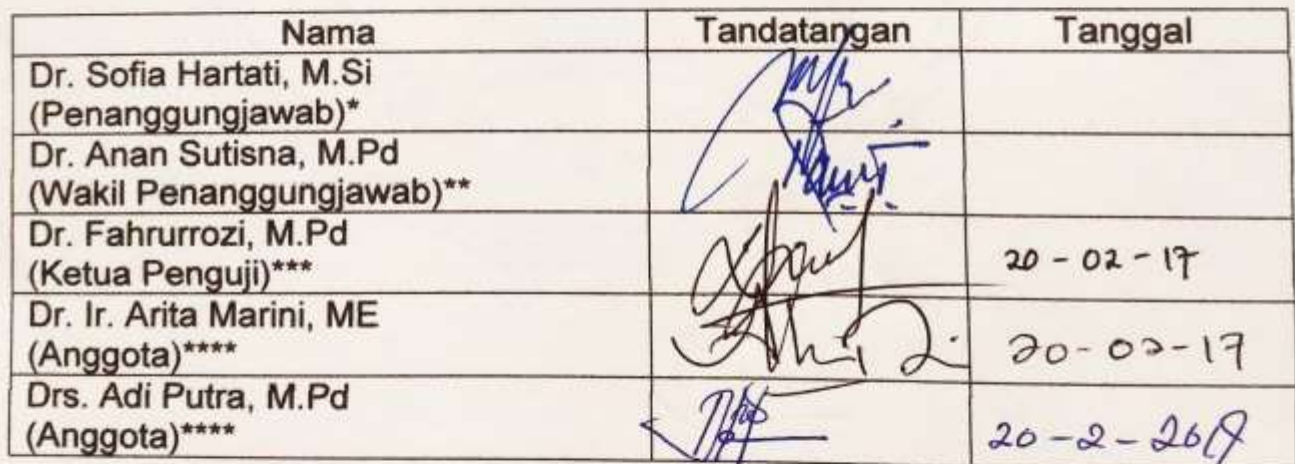 Nama Tandatangan Tanggal
Dr. Sofia Hartati, M.Si
(Penanggungjawab)*
Dr. Anan Sutisna, M.Pd
(Wakil Penanggungjawab)**
Dr. Fahrurrozi, M.Pd
(Ketua Penguji)*** 20 - 02 - 17
Dr. Ir. Arita Marini, ME
(Anggota)**** 20 - 02 - 17
Drs. Adi Putra, M.Pd
(Anggota)**** 20 - 2 - 2017